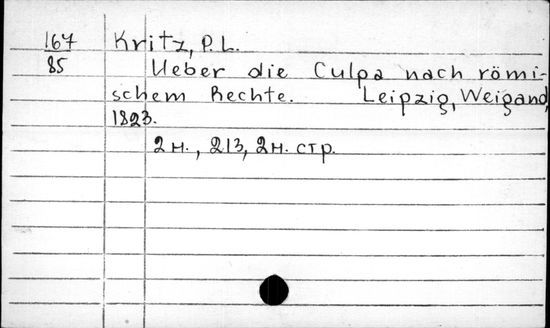 167 Kritz, P. L.
85 Ueber die Culpa nach römi-
schem Rechte. Leipzig, Weigand,
1823.
2 н., 213, 2 н. стр.